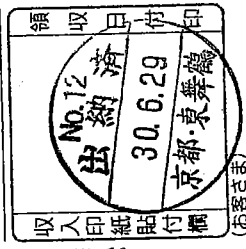 領収日付印
No.12
出納済
30.6.29
京都・東舞鶴
収入印紙貼付欄
(お客さま)